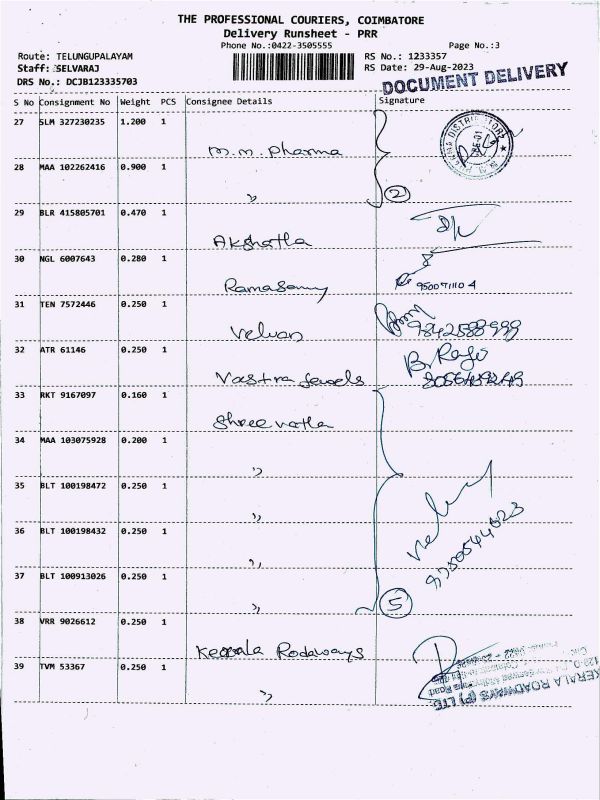 THE PROFESSIONAL COURIERS, COIMBATORE
Delivery Runsheet - PRR
Phone No.:0422-3505555
Page No.:3
Route: TELUNGUPALAYAM
RS No.: 1233357
Staff: SELVARAJ
RS Date: 29-Aug-2023
DRS No.: DCJB123335703
DOCUMENT DELIVERY
S No Consignment No Weight PCS Consignee Details Signature
27 SLM 327230235 1.200 1
m.m. pharma
28 MAA 102262416 0.900 1
"
2
29 BLR 415805701 0.470 1
Akshatla
30 NGL 6007643 0.280 1
Ramasamy
31 TEN 7572446 0.250 1
Velvan
32 ATR 61146 0.250 1
Vastra Jewels
B. Raju
33 RKT 9167097 0.160 1
Shree vatla
34 MAA 103075928 0.200 1
"
35 BLT 100198472 0.250 1
"
36 BLT 100198432 0.250 1
"
37 BLT 100913026 0.250 1
"
5
38 VRR 9026612 0.250 1
Kerala Rodaways
39 TVM 53367 0.250 1
"
KERALA ROADWAYS (P) LTD.